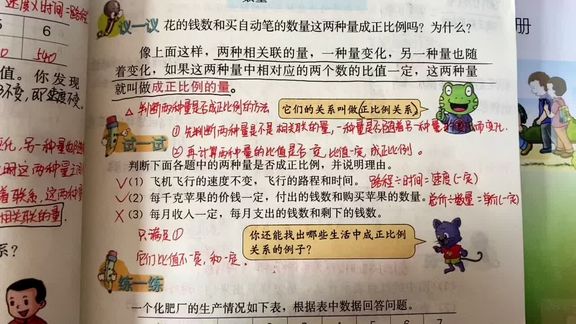 速度×时间=路程
5 6
540
值。你发现
不变,即速度不变。
议一议 花的钱数和买自动笔的数量这两种量成正比例吗?为什么?
像上面这样,两种相关联的量,一种量变化,另一种量也随
着变化,如果这两种量中相对应的两个数的比值一定,这两种量
就叫做成正比例的量。
它们的关系叫做正比例关系。
△ 判断两种量是否成正比例的方法
① 先判断两种量是不是相关联的量,一种量是否随着另一种量的变化而变化。
试一试
② 再计算两种量的比值是否一定,比值一定,成正比例。
判断下面各题中的两种量是否成正比例,并说明理由。
✓(1)飞机飞行的速度不变,飞行的路程和时间。 路程÷时间=速度(一定)
✓(2)每千克苹果的价钱一定,付出的钱数和购买苹果的数量。 总价÷数量=单价(一定)
×(3)每月收入一定,每月支出的钱数和剩下的钱数。
只满足①
它们比值不一定,和一定。
你还能找出哪些生活中成正比例
关系的例子?
练一练
一个化肥厂的生产情况如下表,根据表中数据回答问题。
变化,另一种量
着联系,这两种量
相关联的量。
系?
册